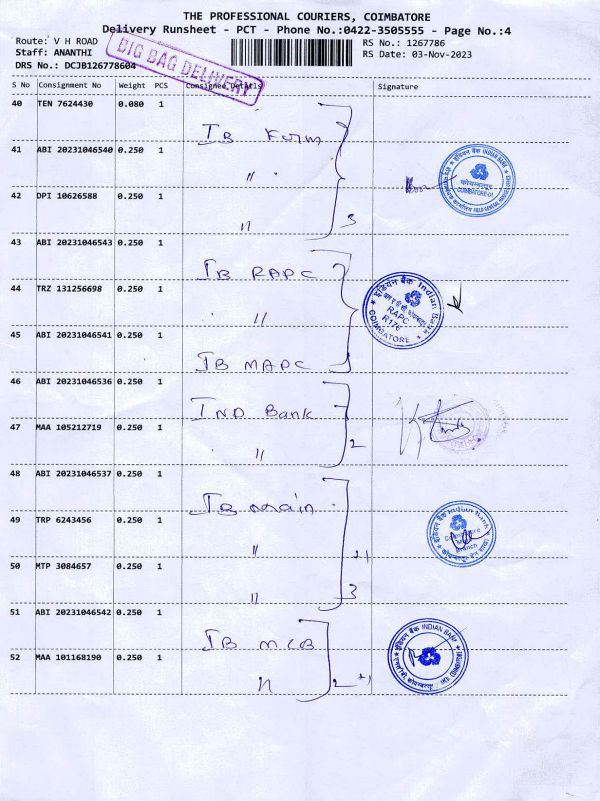 THE PROFESSIONAL COURIERS, COIMBATORE
Delivery Runsheet - PCT - Phone No.:0422-3505555 - Page No.:4
Route: V H ROAD
RS No.: 1267786
Staff: ANANTHI
RS Date: 03-Nov-2023
DRS No.: DCJB126778604
BIG BAG DELIVERY
S No Consignment No Weight PCS Consignee Details Signature
40 TEN 7624430 0.080 1
IB Form
41 ABI 20231046540 0.250 1
"
42 DPI 10626588 0.250 1
" 3
43 ABI 20231046543 0.250 1
IB RAPC
44 TRZ 131256698 0.250 1
"
45 ABI 20231046541 0.250 1
IB MAPC
46 ABI 20231046536 0.250 1
IND Bank
47 MAA 105212719 0.250 1
" 2
48 ABI 20231046537 0.250 1
IB main
49 TRP 6243456 0.250 1
"
50 MTP 3084657 0.250 1
" 3
51 ABI 20231046542 0.250 1
IB MCB
52 MAA 101168190 0.250 1
" 2
इंडियन बैंक INDIAN BANK
कोयम्बत्तूर
COIMBATORE-01
इंडियन बैंक Indian Bank
RAPC
R176
COIMBATORE
इंडियन बैंक Indian Bank
Coimbatore
Main
Branch
इंडियन बैंक INDIAN BANK